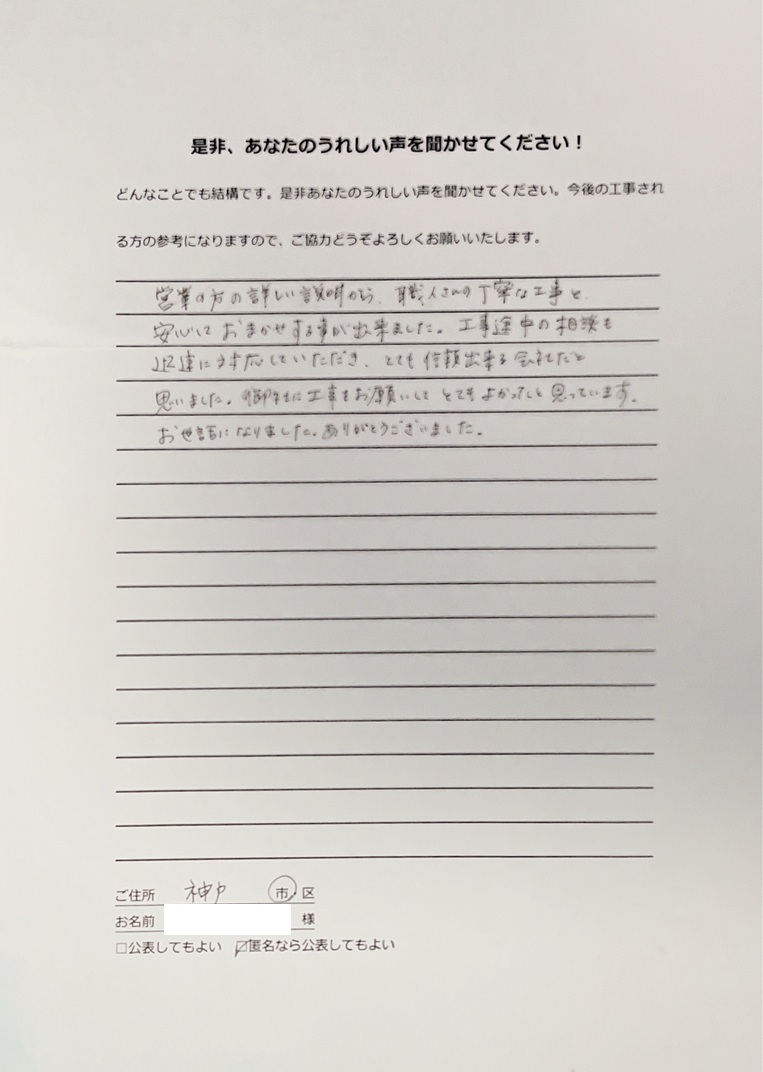 是非、あなたのうれしい声を聞かせてください！
どんなことでも結構です。是非あなたのうれしい声を聞かせてください。今後の工事され
る方の参考になりますので、ご協力どうぞよろしくお願いいたします。
営業の方の詳しい説明から、職人さんの丁寧な工事と、
安心しておまかせする事が出来ました。工事途中の相談も
迅速に対応していただき、とても信頼出来る会社だと
思いました。御社に工事をお願いしてとてもよかったと思っています。
お世話になりました。ありがとうございました。
ご住所 神戸 市・区
お名前 様
□公表してもよい ☑匿名なら公表してもよい